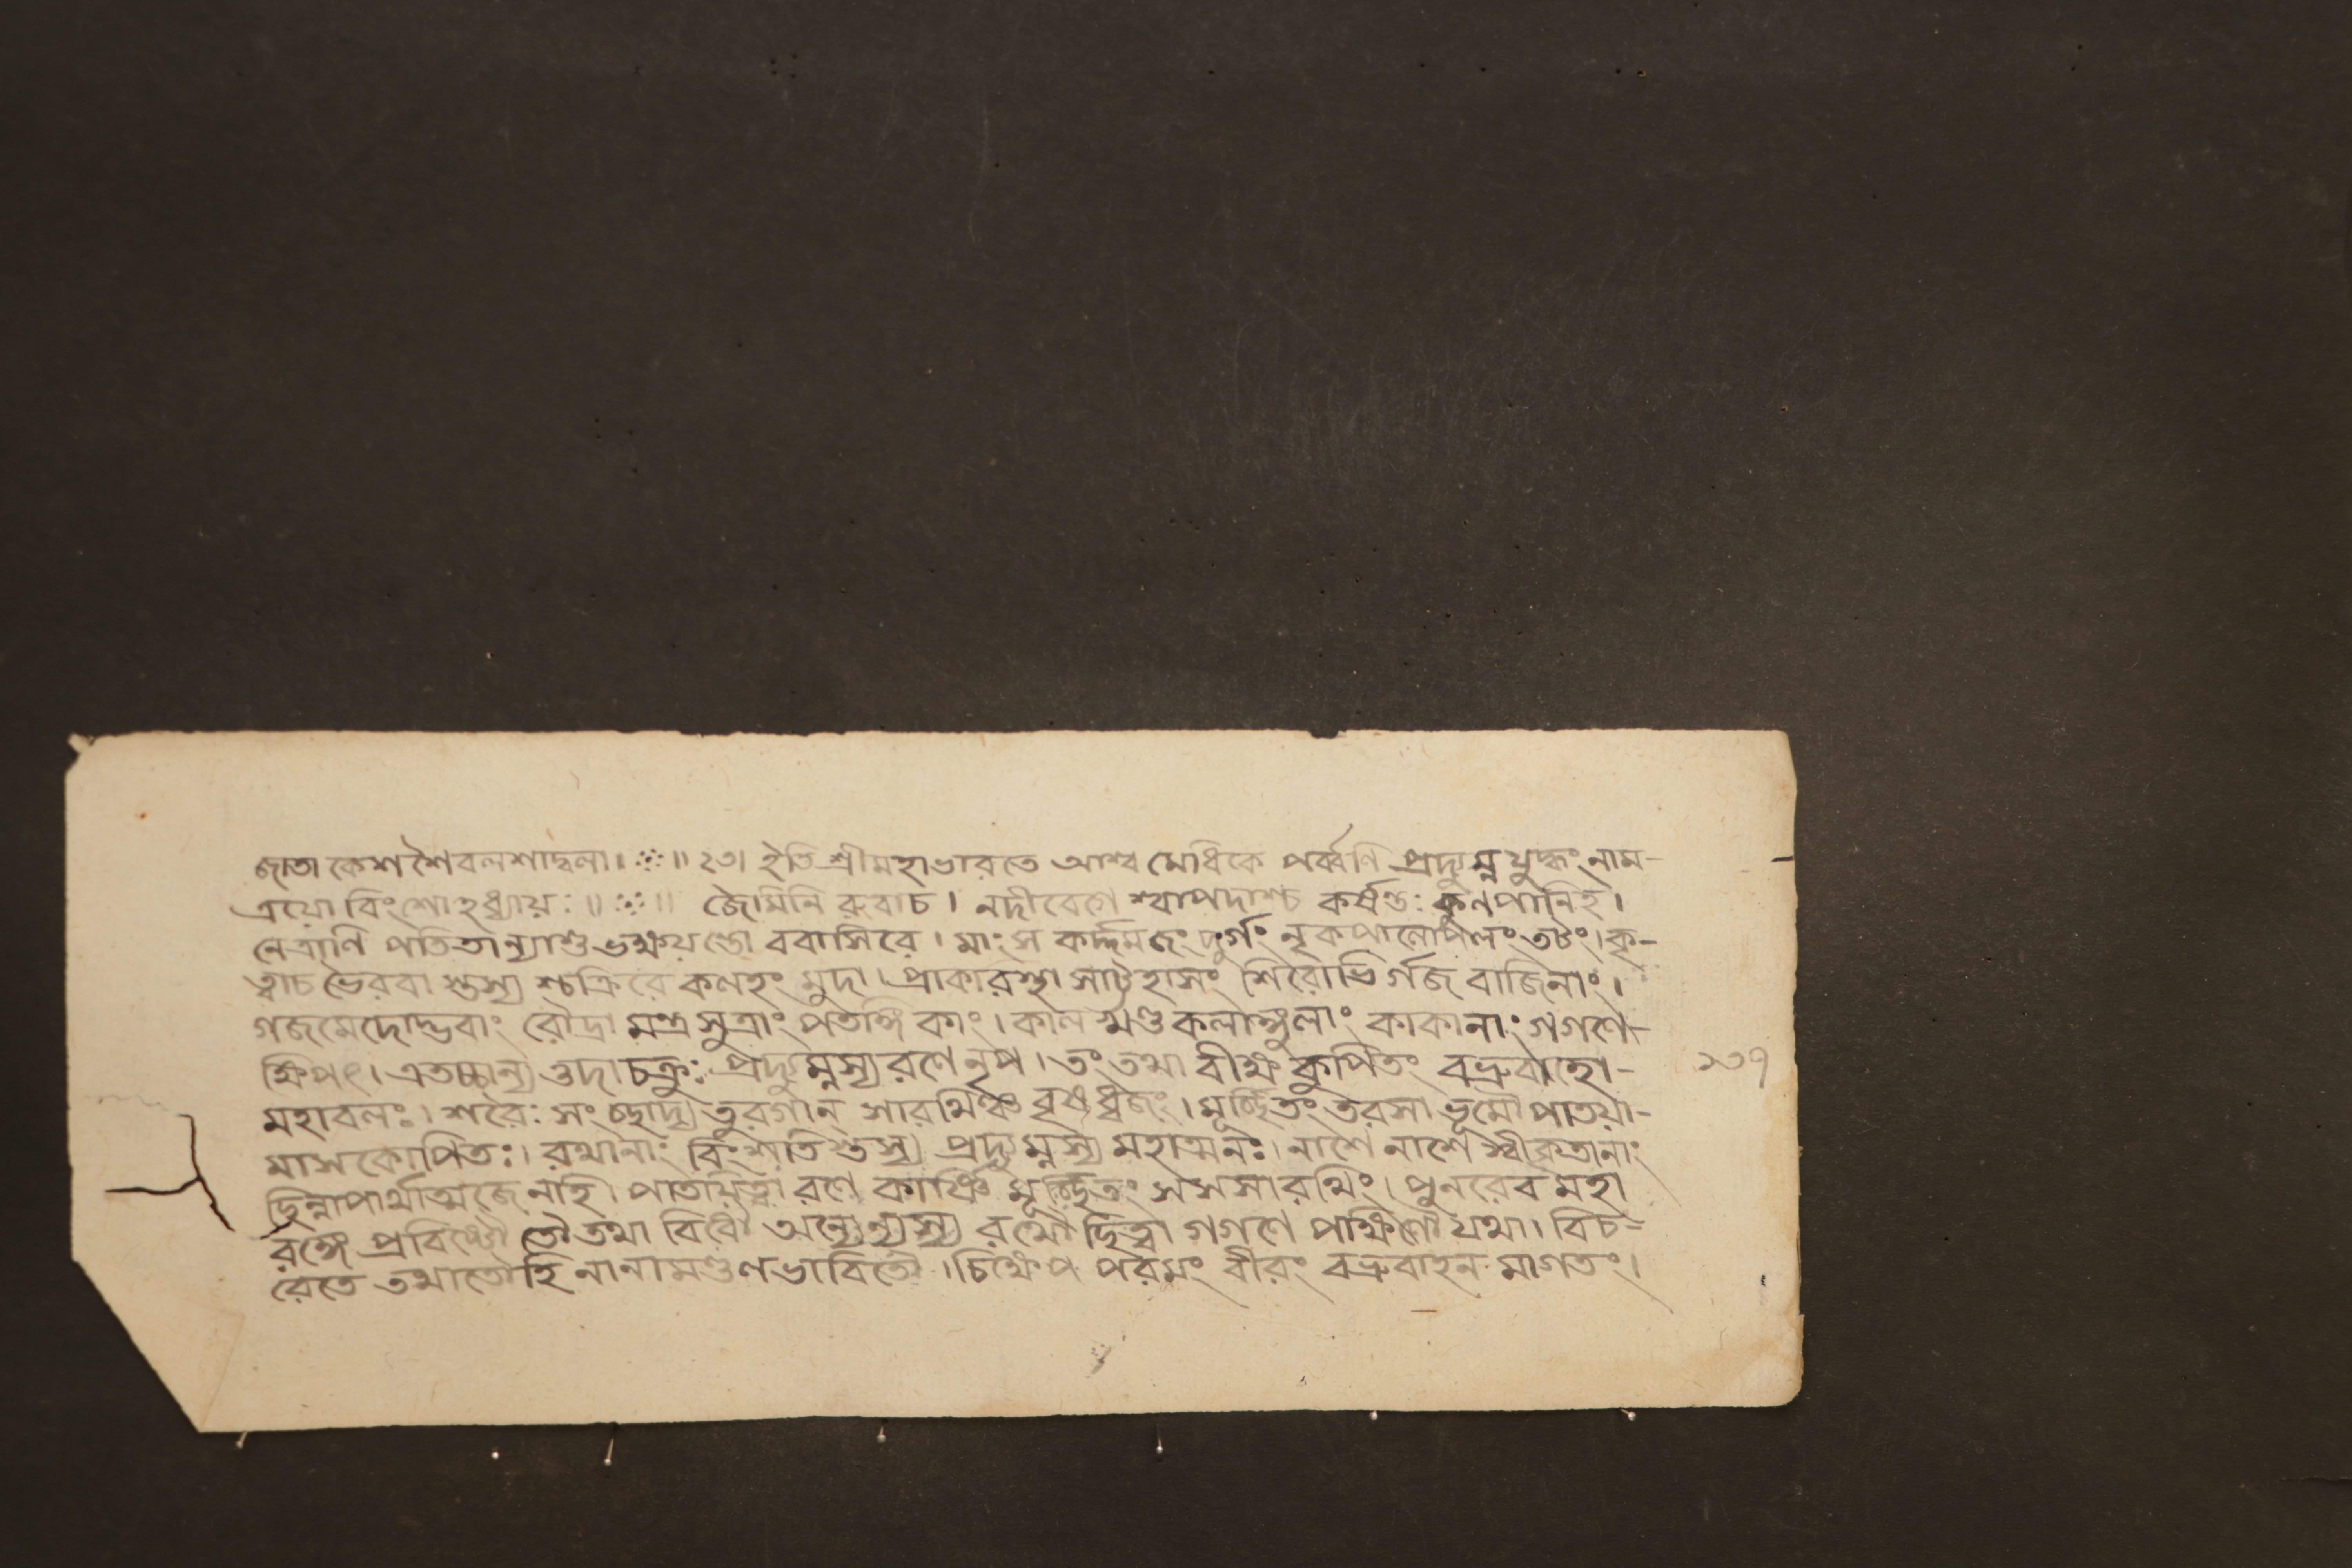 জাতা কেশ শৈবলশাদ্বলা। ༶ ॥ ২৩। ইতি শ্রীমহাভারতে আশ্ব মেধিকে পর্ব্বণি প্রদ্যুম্ন যুদ্ধং নাম-
ত্রয়ো বিংশোঽধ্যায়ঃ॥ ༶ ॥ জৈমিনি রুবাচ। নদীবেগে শ্বাপদাশ্চ কর্ষন্তঃ কুণপানিহ।
নেত্রাণি পতিতান্যাশু ভক্ষয়ন্তো ববাসিরে। মাংস কর্দ্দমজং দুর্গং নৃকপালোপলং তটং। কৃ-
ত্বাচ ভৈরবা স্তস্য শ্চক্রিরে কলহং মুদা। প্রাকারস্থা সাট্টহাসং শিরোভি র্গজ বাজিনাং।
গজমেদোদ্ভবাং রৌদ্রা মন্ত্রসুত্রাং পতঙ্গি কাং। কাল খণ্ড কলাঙ্গুলাং কাকানাং গগণে-
ক্ষিপৎ। এতচ্চান্য ত্তদা চক্রুঃ প্রদ্যুম্নস্য রণে নৃপ। তং তথা বীক্ষ কুপিতং বভ্রুবাহো- ১৩৭
মহাবলঃ। শরৈঃ সংচ্ছাদ্য তুরগান্ সারথিঞ্চ বৃষধ্বজং। মূর্চ্ছিতং তরসা ভূমৌ পাতয়া-
মাসকোপিতঃ। রথানাং বিংশতি স্তস্য প্রদ্যুম্নস্য মহাত্মনঃ। নাশে নাশে স্বীকৃতানাং
ছিন্নাপার্থাত্মজে নহি। পাতয়িত্বা রণে কার্ষ্ণিং মূর্চ্ছিতং সসসারথিং। পুনরেব মহা
রঙ্গে প্রবিষ্টৌ তৌ তথা বিবৌ অন্যোন্যস্য রথৌ ছিত্বা গগণে পক্ষিণৌ যথা। বিচ-
রেতে তথাতৌহি নানামণ্ডলভাবিতৌ। চিক্ষেপ পরমং বীরং বভ্রুবাহন মাগতং।